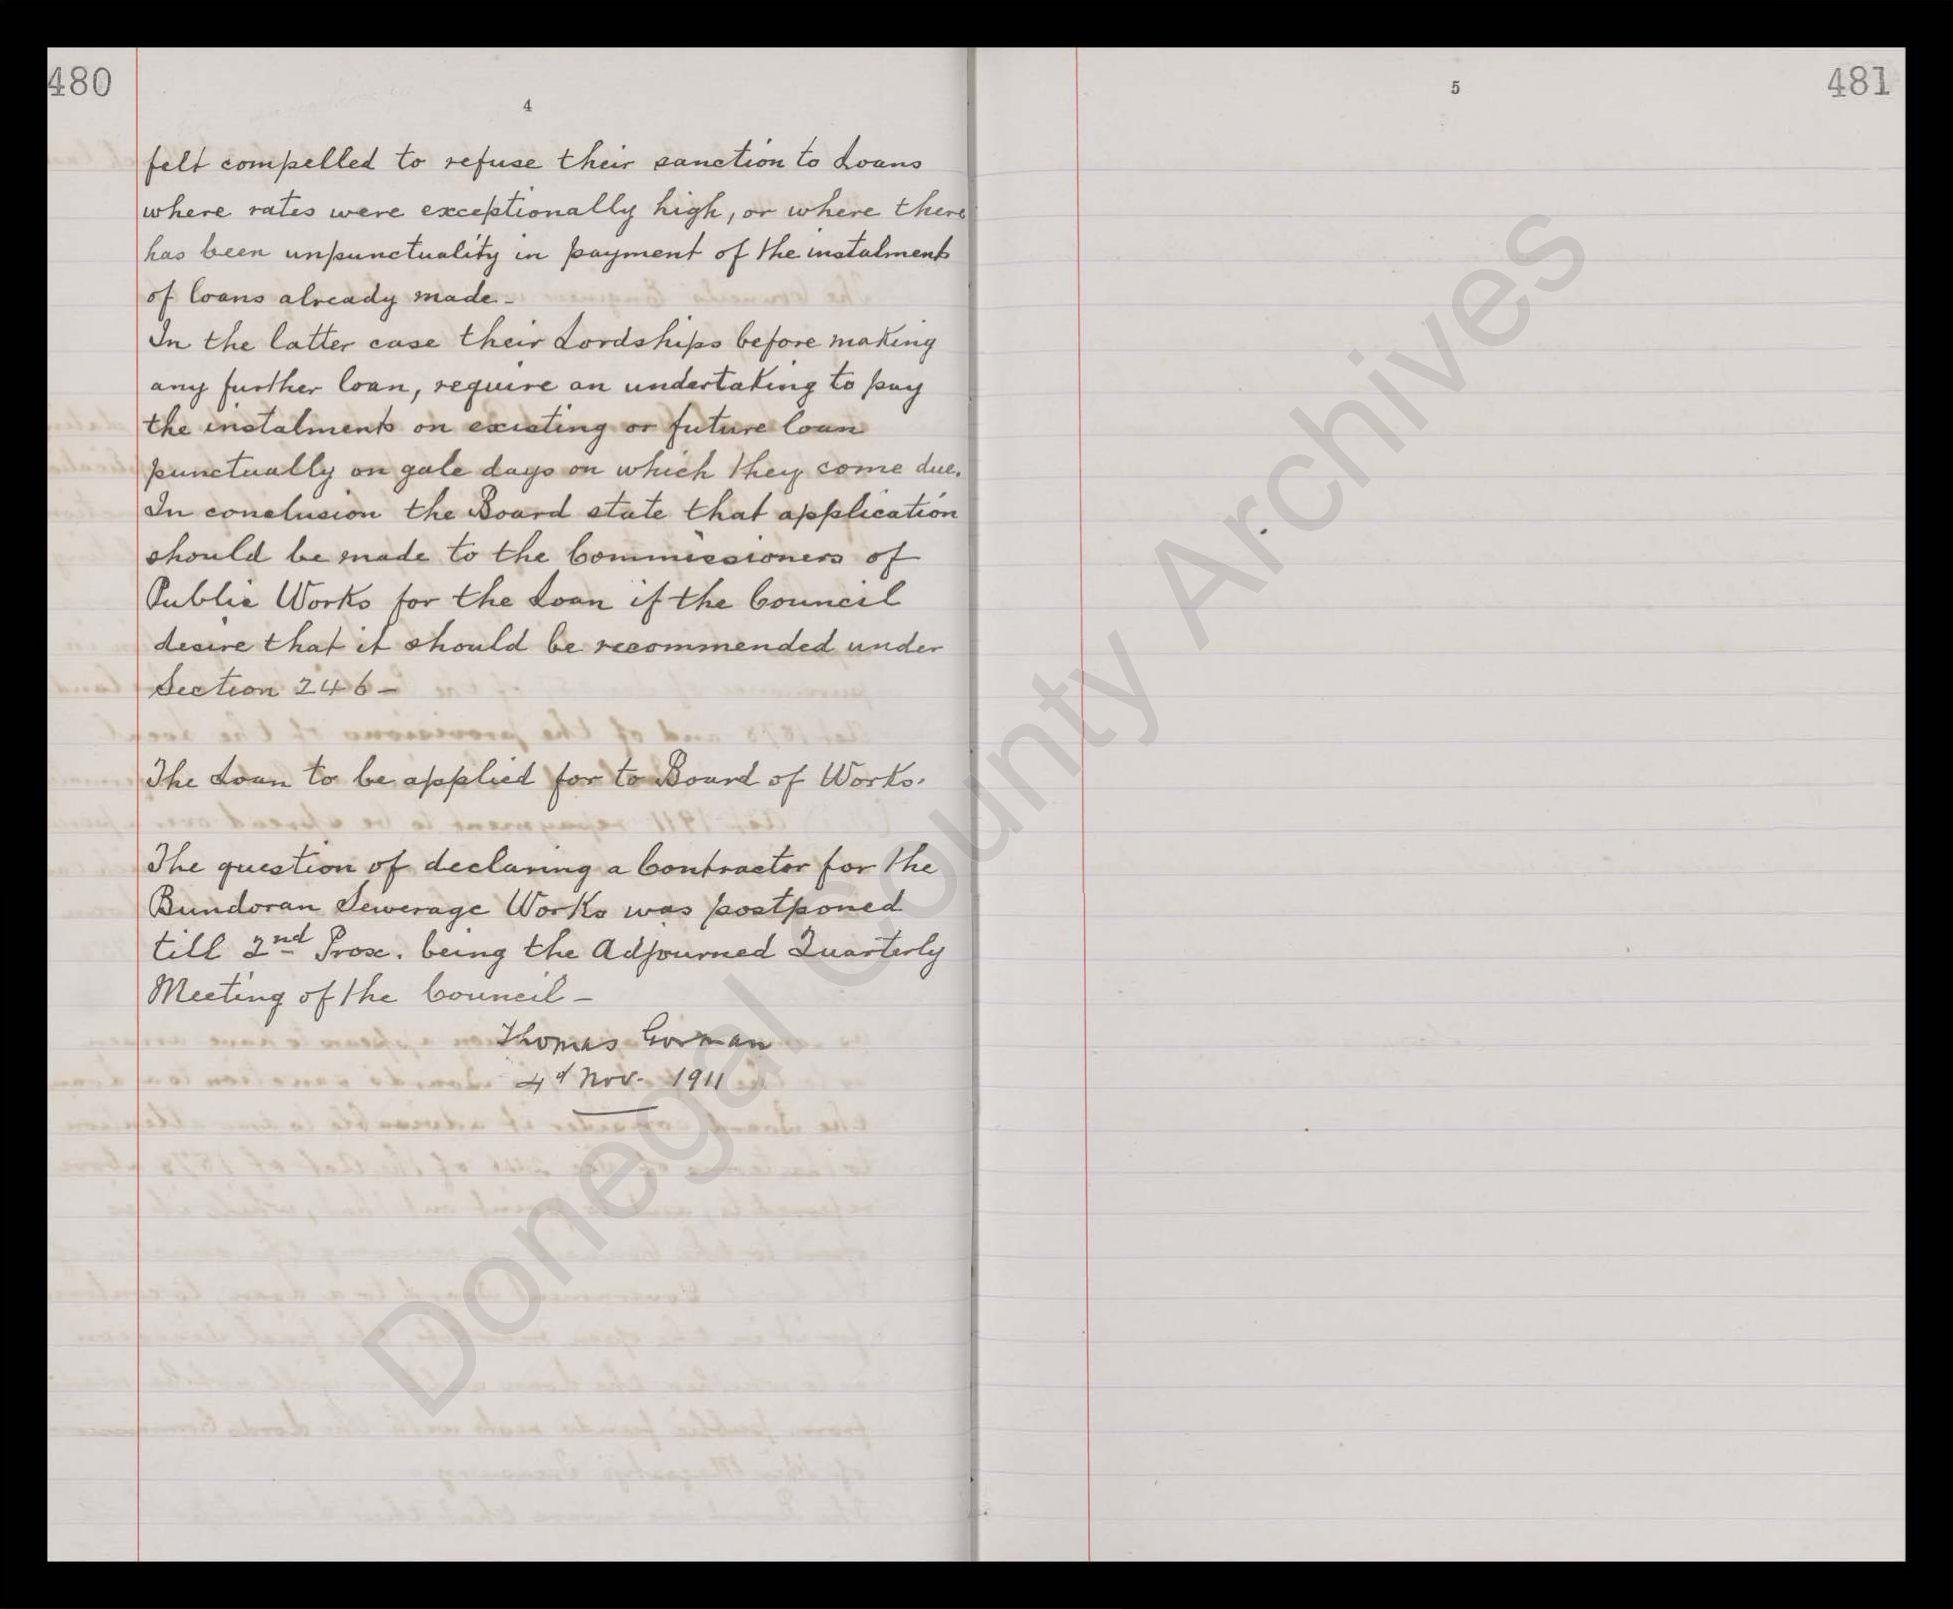 480
4
felt compelled to refuse their sanction to Loans
where rates were exceptionally high, or where there
has been unpunctuality in payment of the instalments
of loans already made -
In the latter case their Lordships before making
any further loan, require an undertaking to pay
the instalments on existing or future loan
punctually on gale days on which they come due.
In conclusion the Board state that application
should be made to the Commissioners of
Public Works for the Loan if the Council
desire that it should be recommended under
Section 246 -
The Loan to be applied for to Board of Works.
The question of declaring a Contractor for the
Bundoran Sewerage Works was postponed
till 2nd Prox. being the Adjourned Quarterly
Meeting of the Council -
Thomas Gorman
4d Nov. 1911
5
481
Donegal County Archives